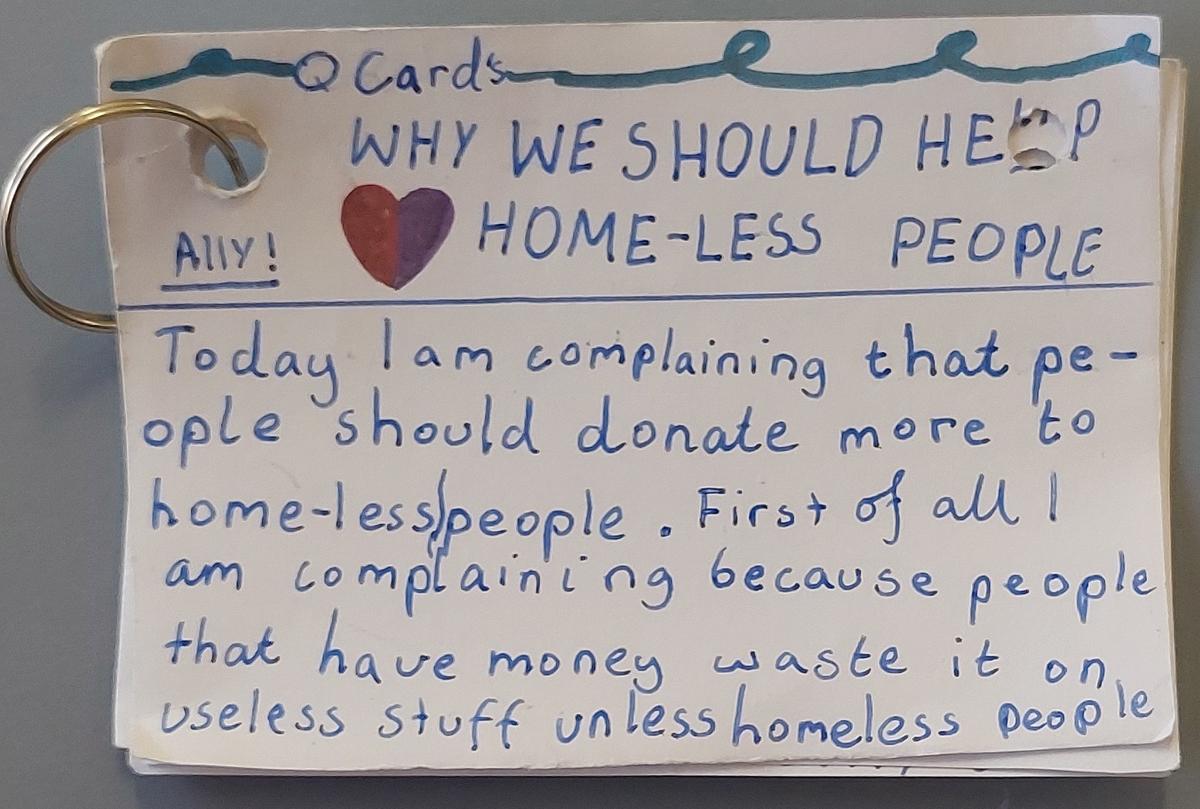 Q Cards
WHY WE SHOULD HELP
Ally! HOME-LESS PEOPLE
Today I am complaining that pe-
ople should donate more to
home-less people. First of all I
am complaining because people
that have money waste it on
useless stuff unless homeless people